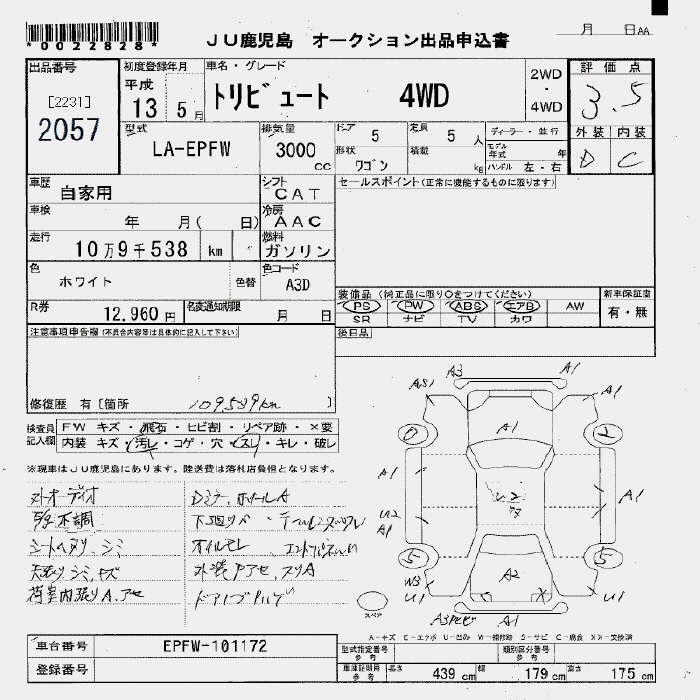 *0022828*
JU鹿児島 オークション出品申込書
月 日AA
出品番号
[2231]
2057
初度登録年月
平成
13 5月
車名・グレード
トリビュート 4WD
2WD
・
4WD
評価点
3.5
型式
LA-EPFW
排気量
3000
cc
ドア 5
定員 5 人
形状 ワゴン
積載 kg
ディーラー・並行
モデル年式 年
ハンドル 左・右
外装 内装
D C
車歴
自家用
シフト
CAT
セールスポイント(正常に機能するものに限ります)
車検
年 月( 日)
冷房
AAC
走行
10万9千538 km
燃料
ガソリン
色
ホワイト
色替
色コード
A3D
装備品(純正品に限り○をつけてください)
新車保証書
PS PW ABS エアB AW
SR ナビ TV カワ
有・無
R券
12,960円
名変通知期限
月 日
注意事項申告欄(不具合内容等は具体的に記入して下さい)
後日品
修復歴 有[箇所 109539km ]
検査員記入欄
FW キズ・飛石・ヒビ割・リペア跡・×要
内装 キズ・汚レ・コゲ・穴・スレ・キレ・破レ
※現車はJU鹿児島にあります。陸送費は落札店負担となります。
外オーディオ
Dミラー、ホイールA
シートヘタリ、シミ
オイルモレ
天張リ、シミ、キズ
荷室内張リA、アセ
A3 A1
AS1 A1
A1
2
A1
A1
U2
A1
5 5
A2
W3
U1 U1
A1
スペア
A-キズ E-エクボ U-凹み W-補修跡 S-サビ C-腐食 XX-交換済
車台番号 EPFW-101172
登録番号
型式指定番号 参考
類別区分番号 参考
車庫証明用 参考
長さ 439 cm 幅 179 cm 高さ 175 cm